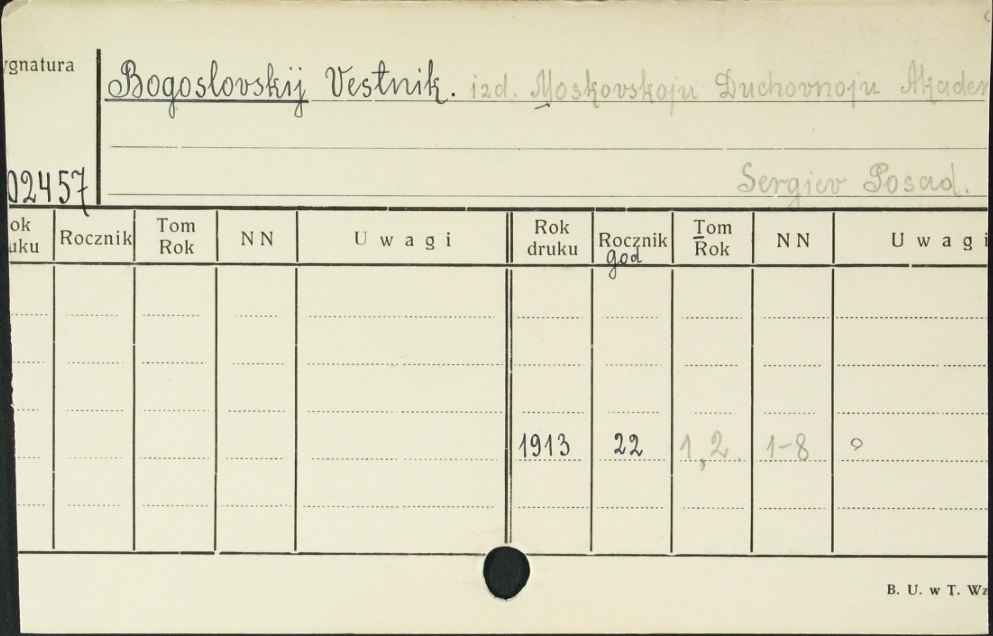 ygnatura
Bogoslovskij Vestnik. izd. Moskovskoju Duchovnoju Akadem
02457
Sergiev Posad.
ok uku Rocznik Tom Rok NN Uwagi Rok druku Rocznik god Tom Rok NN Uwagi
1913 22 1,2. 1-8
B. U. w T. Wz